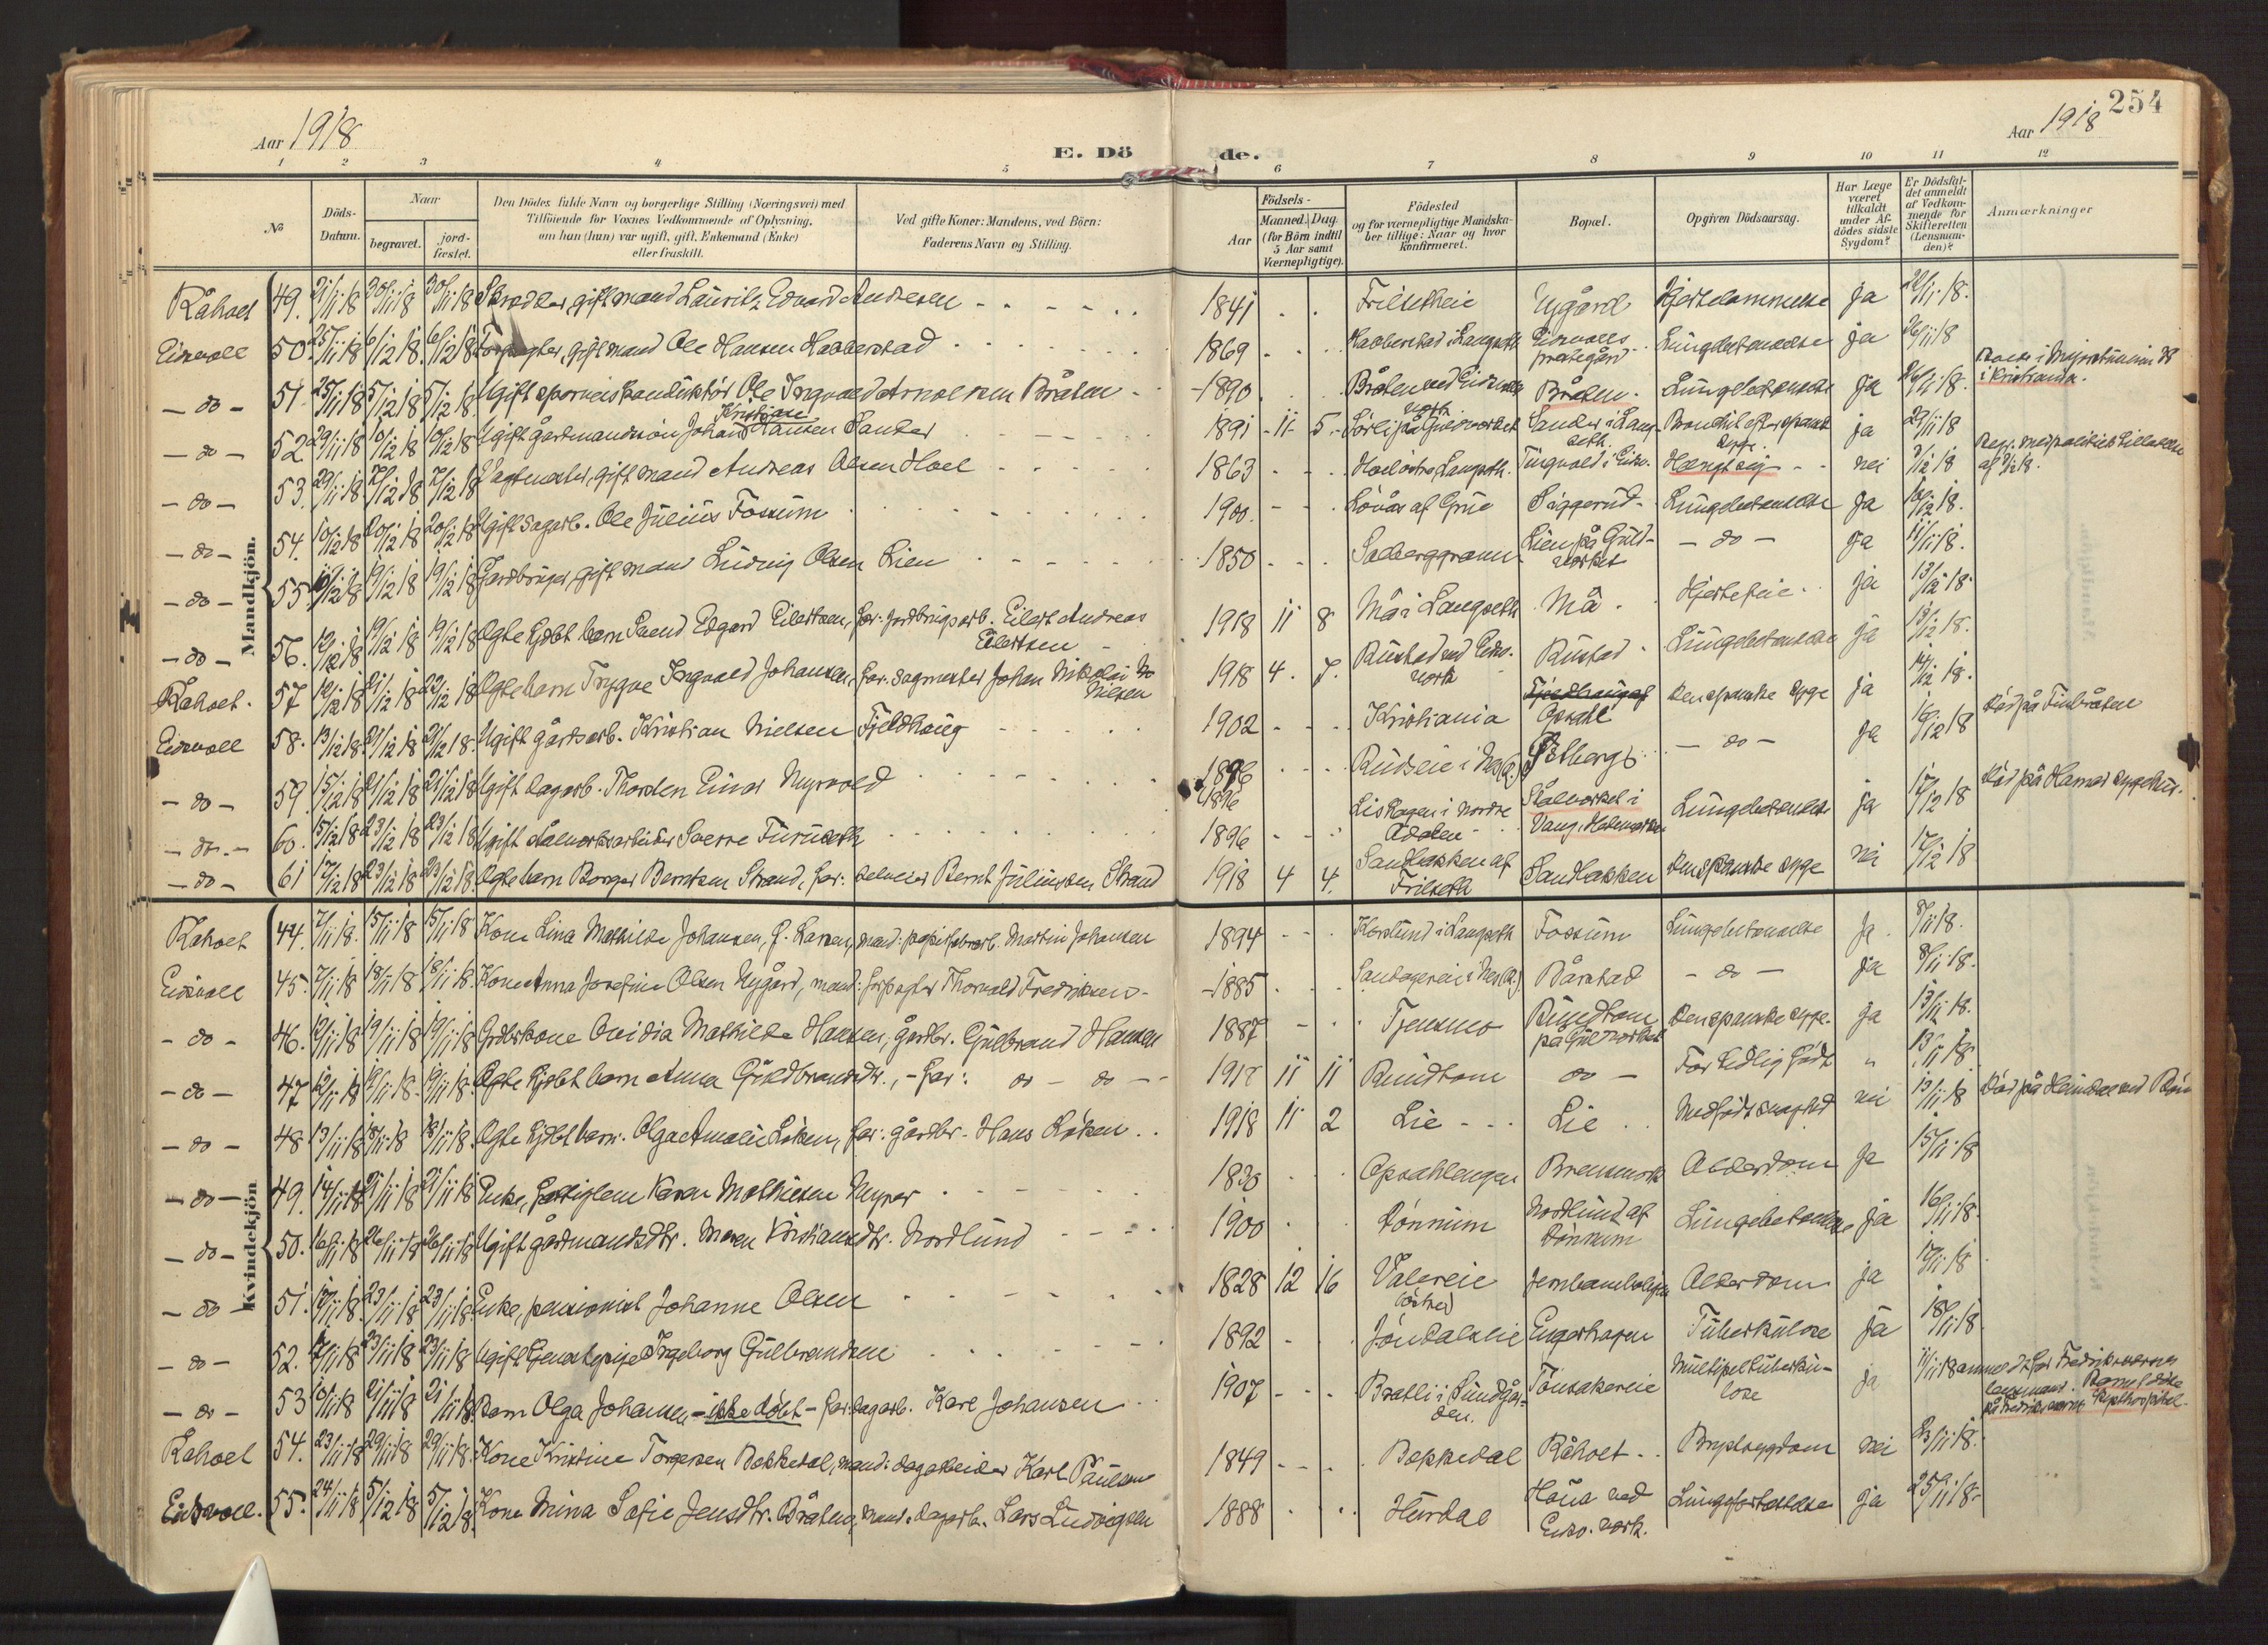 254
Aar 1918
E. Dö de.
Aar 1918
1 2 3 4 5 6 7 8 9 10 11 12
№
Döds-
Datum.
Naar
begravet.
jord-
fæstet.
Den Dödes fulde Navn og borgerlige Stilling (Næringsvei) med
Tilföiende for Voxnes Vedkommende af Oplysning,
om han (hun) var ugift, gift, Enkemand (Enke)
eller fraskilt.
Ved gifte Koner: Mandens, ved Börn:
Faderens Navn og Stilling.
Födsels-
Aar
Maaned.
Dag
(for Börn indtil
5 Aar samt
Værnepligtige).
Födested
og for værnepligtige Mandska-
ber tillige: Naar og hvor
konfirmeret.
Bopæl.
Opgiven Dödsaarsag.
Har Læge
været
tilkaldt
under Af-
dödes sidste
Sygdom?
Er Dödsfal-
det anmeldt
af Vedkom-
mende for
Skifteretten
(Lensman-
den)?
Anmærkninger
Mandkjön.
Råholt 49. 21/11 18 30/11 18 30/11 18 Skrædder, gift mand Lauritz Edvard Andresen 1841 Trilsetheie Nygård Hjertelammelse ja 22/11 18.
Eidsvoll 50. 25/11 18 6/12 18. 6/12 18 Forpagter, gift mand Ole Hansen Habberstad 1869 Habberstad i Langseth Eidsvolls
prestegård Lungebetændelse ja 26/11 18
- do - 51. 25/11 18 5/12 18 5/12 18. Ugift sporveiskonduktör Ole Ingvald Arnoldsen Bråten 1890 Bråten ved Eidsvolls
værk Bråten. Lungebetændelse ja 26/11 18.
i Kristiania.
- do - 52. 29/11 18 10/12 18 10/12 18 Ugift gårdmandssön Johan Kristian Hansen Sander 1891 11 5 Sörli på Guldværket Sander i Lang-
seth ja 29/11 18
- do - 53. 29/11 18 7/12 18 7/12 18 Vagtmester, gift mand Andreas Olsen Hoel 1863 Hoel östre, Langseth. Hængt sig nei 3/12 18
- do - 54. 10/12 18 20/12 18 20/12 18 Ugift sagarb. Ole Julius Fossum 1900. Lövås af Grue Siggerud Lungebetændelse ja 10/12 18.
- do - 55. 19/12 18 19/12 18 Jordbruger, gift mand Ludvig Olsen Lien 1850 Lien på Guld-
værket - do - ja 11/11 18.
- do - 56. 12/12 18 19/12 18 19/12 18 Ægte hjdbt barn Svend Edgard Eilertsen, far: jordbrugsarb. Eilert Andreas
Eilertsen 1918 11 8 Må i Langseth Må Hjertefeil ja 13/12 18.
Råholt. 57 12/12 18 21/12 18 Ægte barn Trygve Ingvald Johansen, far: sagmester Johan Nikolai
Nilsen 1918 4. 7. Rustad ved Eidsv.
værk Rustad Lungebetændelse ja 13/12 18.
Eidsvoll 58. 13/12 18. 21/12 18 21/12 18. Ugift gårdsarb. Kristian Nielsen Fjeldhaug 1902 Kristiania Fjeldhaug af
Opsahl den spanske syge ja 14/12 18.
- do - 59. 15/12 18 21/12 18 21/12 18 Ugift dagarb. Thorsten Einar Myrvold 1896
1896 Rudseie i Nes (R.) - do - ja 16/12 18 död på Finbråten
- do - 60. 15/12 18 23/12 18 23/12 18 Ugift stålverksarbeider Sverre Furuseth 1896 Liskogen i nordre
Ådalen Stålverket i
Vang, Hedemarken Lungebetændelse ja 17/12 18 död på Hamar sygehus.
- do - 61 17/12 18 23/12 18 23/12 18. Ægte barn Borger Berntsen Strand, far: selveier Bernt Juliussen Strand 1918 4 4. Sandbakken af
Trilseth Sandbakken den spanske syge nei 17/12 18
Kvindekjön
Råholt 44. 7/11 18. 15/11 18 15/11 18 Kone Lina Mathilde Johansen, f. Larsen, mand: papirfabrarb. Martin Johansen 1894 Korslund i Langseth Fossum Lungebetændelse ja 8/11 18.
Eidsvoll 45. 7/11 18 18/11 18 18/11 18. Kone Anna Josefine Olsen Nygård, mand: forpagter Thorvald Fredriksen 1885 Bårstad - do - ja 8/11 18.
- do - 46. 12/11 18 19/11 18 19/11 18 Grdbrkone Ovidia Mathilde Hansen, gårdbr. Gulbrand Hansen 1887 Tjensmo Rundtom
på Guldværket den spanske syge. ja 13/11 18.
- do - 47 12/11 18 19/11 18. 19/11 18. Ægte hjdbt barn Anna Guldbrandsdtr., - far: do - do - 1918 11 11 Rundtom do - For tidlig født " 13/11 18
- do - 48 13/11 18 18/11 18. Ægte hjdbt barn. Olga Amalie Löken, far: gårdbr. Hans Löken 1918 11 2 Lie Lie Medfödt svaghed nei 13/11 18
- do - 49. 14/11 18 21/11 18 21/11 18 Enke, fattiglem Karen Mathiesen Myrer 1830 Opsahlengen Alderdom ja 15/11 18
- do - 50. 16/11 18 26/11 18 26/11 18 Ugift gårdmandsdtr. Maren Kristiansdtr. Nordlund 1900 Dönnum Nordlund af
Dönnum Lungebetændelse ja 16/11 18.
- do - 51. 17/11 18. 23/11 18 23/11 18. Enke, pensionist Johanne Olsen 1828 12 16 Valereie
(östre) Jernbaneboligen Alderdom ja 17/11 18
- do - 52. 17/11 18 23/11 18 23/11 18 Ugift tjenestepige Ingeborg Gulbrandsen 1892 Jöndalseie Engerhagen Tuberkulose ja 18/11 18
- do - 53 10/11 18 21/11 18 21/11 18. Barn Olga Johansen - ikke döbt - far: dagarb. Karl Johansen 1907 Bratli i Sundgår-
den. Tönsakereie Multipel tuberku-
lose ja 11/11 18 anmeldt for Fredriksværns
lensmand. Barnet döde
på Fredriksværns Kysthospital.
Råholt 54. 23/11 18 29/11 18 29/11 18. Kone Kristine Torgersen Bekkedal, mand: dagarbeider Karl Paulsen 1849 Bekkedal Råholt Brystsygdom nei 23/11 18.
Eidsvoll. 55. 24/11 18 5/12 18 5/12 18. Kone Mina Sofie Jensdtr. Bråten, mand: dagarb. Lars Ludvigsen 1888 Hurdal Höua ved
Eidsv. værk. Lungebetændelse ja 25/11 18.